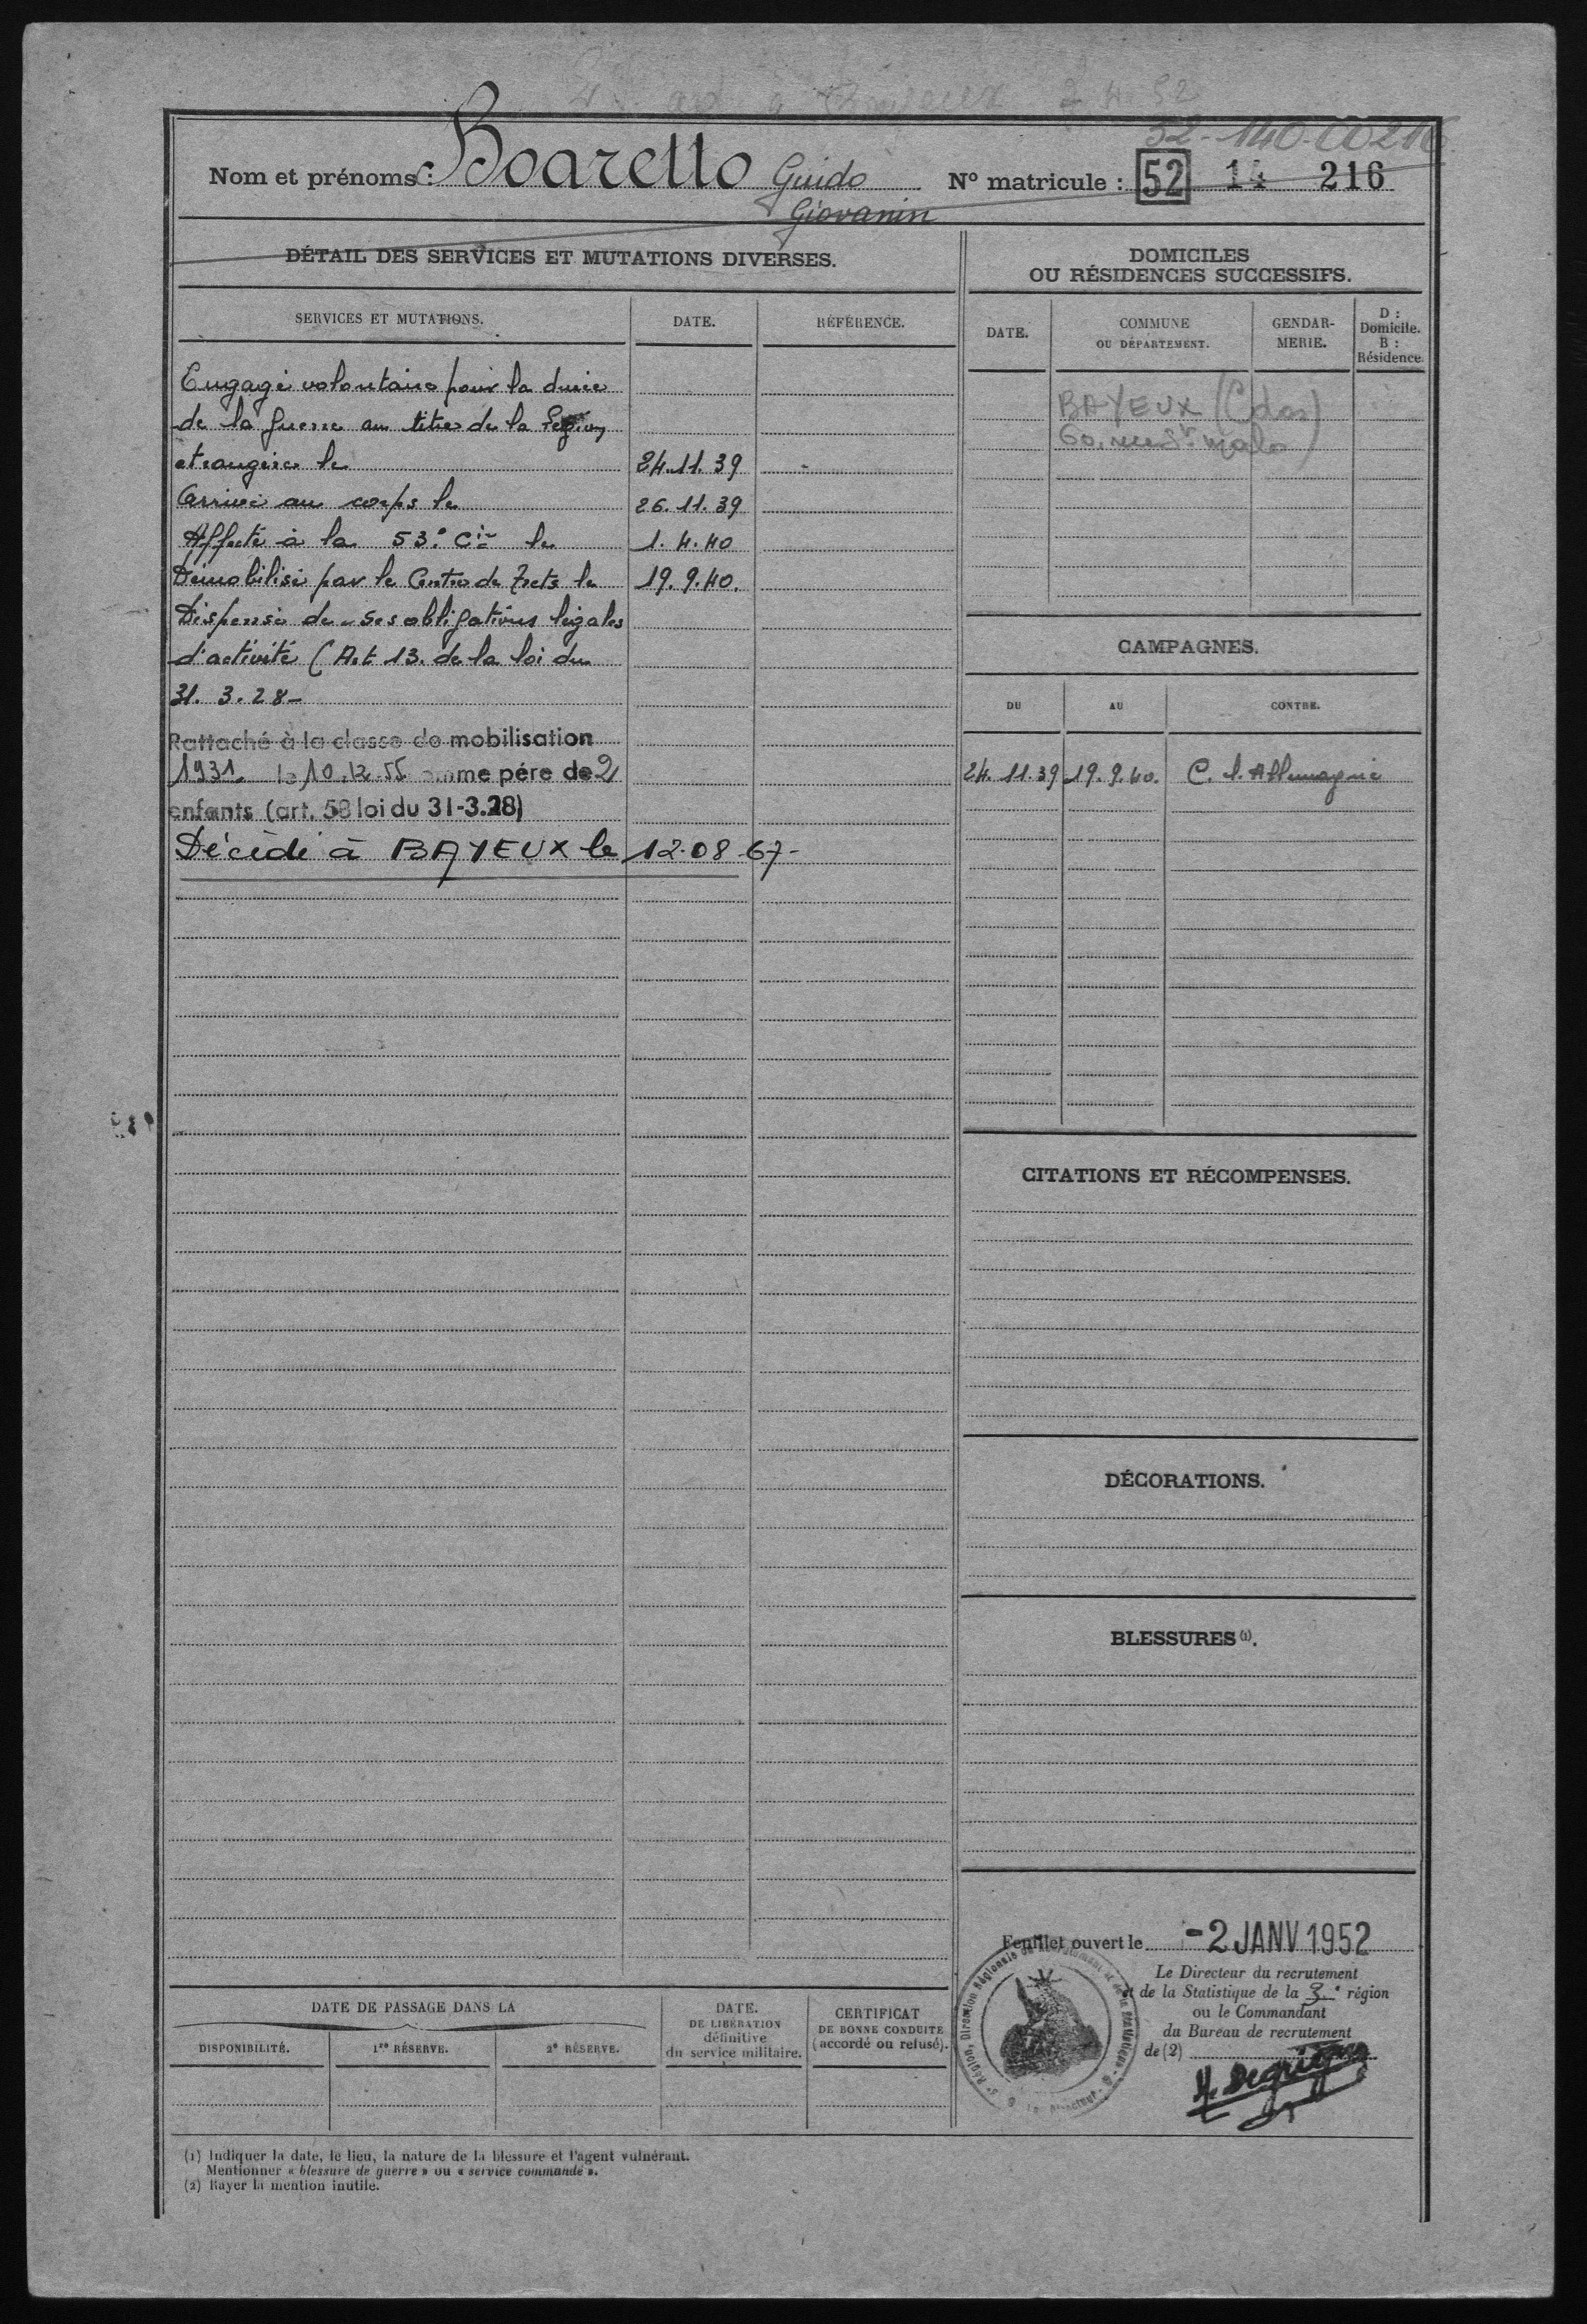 52-140-00216
Nom et prénoms : Boaretto Guido
Giovanin
N° matricule : 52 14 216
DÉTAIL DES SERVICES ET MUTATIONS DIVERSES.
SERVICES ET MUTATIONS. DATE. RÉFÉRENCE.
Engagé volontaire pour la durée
de la guerre au titre de la Légion
etrangère le 24.11.39
Arrivé au corps le 26.11.39
Affecté à la 53e Cie le 1.4.40
Démobilisé par le Centre de Trets le 19.9.40.
Dispensé de ses obligations légales
d'activité (Art 13. de la loi du
31.3.28-
Rattaché à la classe de mobilisation
1931 le 10.12.55 comme père de 2
enfants (art. 58 loi du 31-3.28)
Décédé à BAYEUX le 12-08-67-
DOMICILES
OU RÉSIDENCES SUCCESSIFS.
DATE. COMMUNE OU DÉPARTEMENT. GENDAR-MERIE. D : Domicile. B : Résidence.
BAYEUX (Cdos)
60, rue St Malo
CAMPAGNES.
DU AU CONTRE.
24.11.39 19.9.40. C. l'Allemagne
CITATIONS ET RÉCOMPENSES.
DÉCORATIONS.
BLESSURES (1).
Feuillet ouvert le -2 JANV 1952
Le Directeur du recrutement
et de la Statistique de la 3e région
ou le Commandant
du Bureau de recrutement
de (2)
DATE DE PASSAGE DANS LA
DISPONIBILITÉ. 1re RÉSERVE. 2e RÉSERVE.
DATE.
DE LIBÉRATION
définitive
du service militaire.
CERTIFICAT
DE BONNE CONDUITE
(accordé ou refusé).
(1) Indiquer la date, le lieu, la nature de la blessure et l'agent vulnérant.
Mentionner « blessure de guerre » ou « service commandé ».
(2) Rayer la mention inutile.